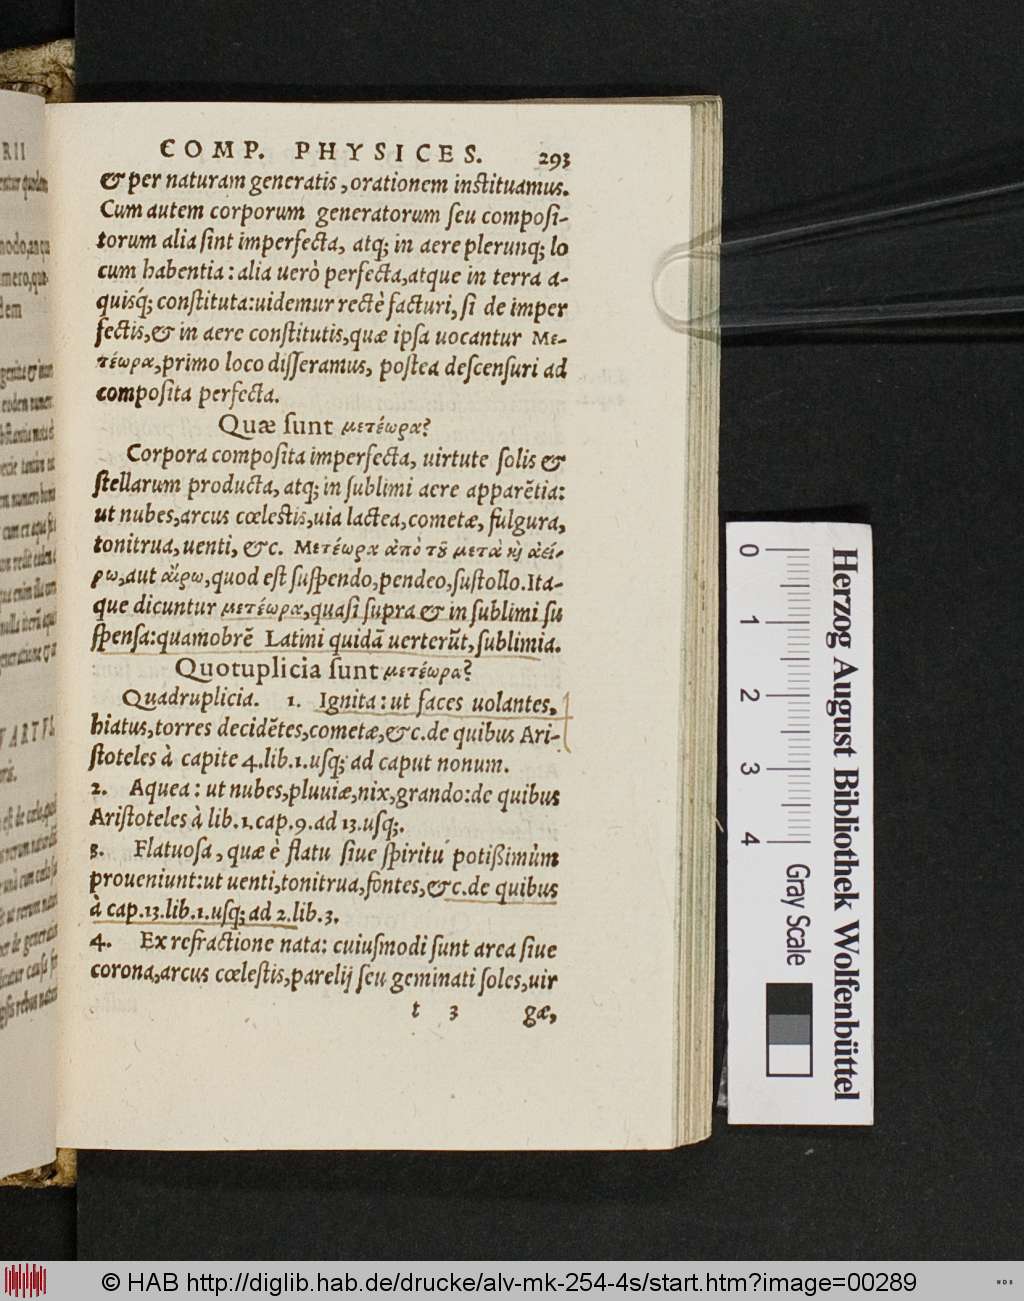 COMP. PHYSICES. 293
& per naturam generatis, orationem instituamus.
Cum autem corporum generatorum ſeu compoſi-
torum alia ſint imperfecta, atq; in aere plerunq; lo
cum habentia: alia uerò perfecta, atque in terra a-
quisq́; conſtituta: uidemur rectè facturi, ſi de imper
fectis, & in aere conſtitutis, quæ ipſa uocantur Με-
τέωρα, primo loco diſſeramus, poſtea deſcenſuri ad
compoſita perfecta.
Quæ ſunt μετέωρα?
Corpora compoſita imperfecta, uirtute ſolis &
ſtellarum producta, atq; in ſublimi aere apparẽtia:
ut nubes, arcus cœleſtis, uia lactea, cometæ, fulgura,
tonitrua, uenti, &c. Μετέωρα ἀπὸ τȣ͂ μετὰ ϗ̀ ἀεί-
ρω, aut αἴρω, quod eſt ſuſpendo, pendeo, ſuſtollo. Ita-
que dicuntur μετέωρα, quaſi ſupra & in ſublimi ſu
ſpenſa: quamobrẽ Latini quidã uerterũt, ſublimia.
Quotuplicia ſunt μετέωρα?
Quadruplicia. 1. Ignita: ut faces uolantes,
hiatus, torres decidẽtes, cometæ, &c. de quibus Ari-
ſtoteles à capite 4. lib. 1. uſq; ad caput nonum.
2. Aquea: ut nubes, pluuiæ, nix, grando: de quibus
Ariſtoteles à lib. 1. cap. 9. ad 13. uſq;.
3. Flatuoſa, quæ è flatu ſiue ſpiritu potißimùm
proueniunt: ut uenti, tonitrua, fontes, &c. de quibus
à cap. 13. lib. 1. uſq; ad 2. lib. 3.
4. Ex refractione nata: cuiuſmodi ſunt area ſiue
corona, arcus cœleſtis, parelij ſeu geminati ſoles, uir
t 3 gæ,
0 1 2 3 4
Gray Scale
Herzog August Bibliothek Wolfenbüttel
© HAB http://diglib.hab.de/drucke/alv-mk-254-4s/start.htm?image=00289